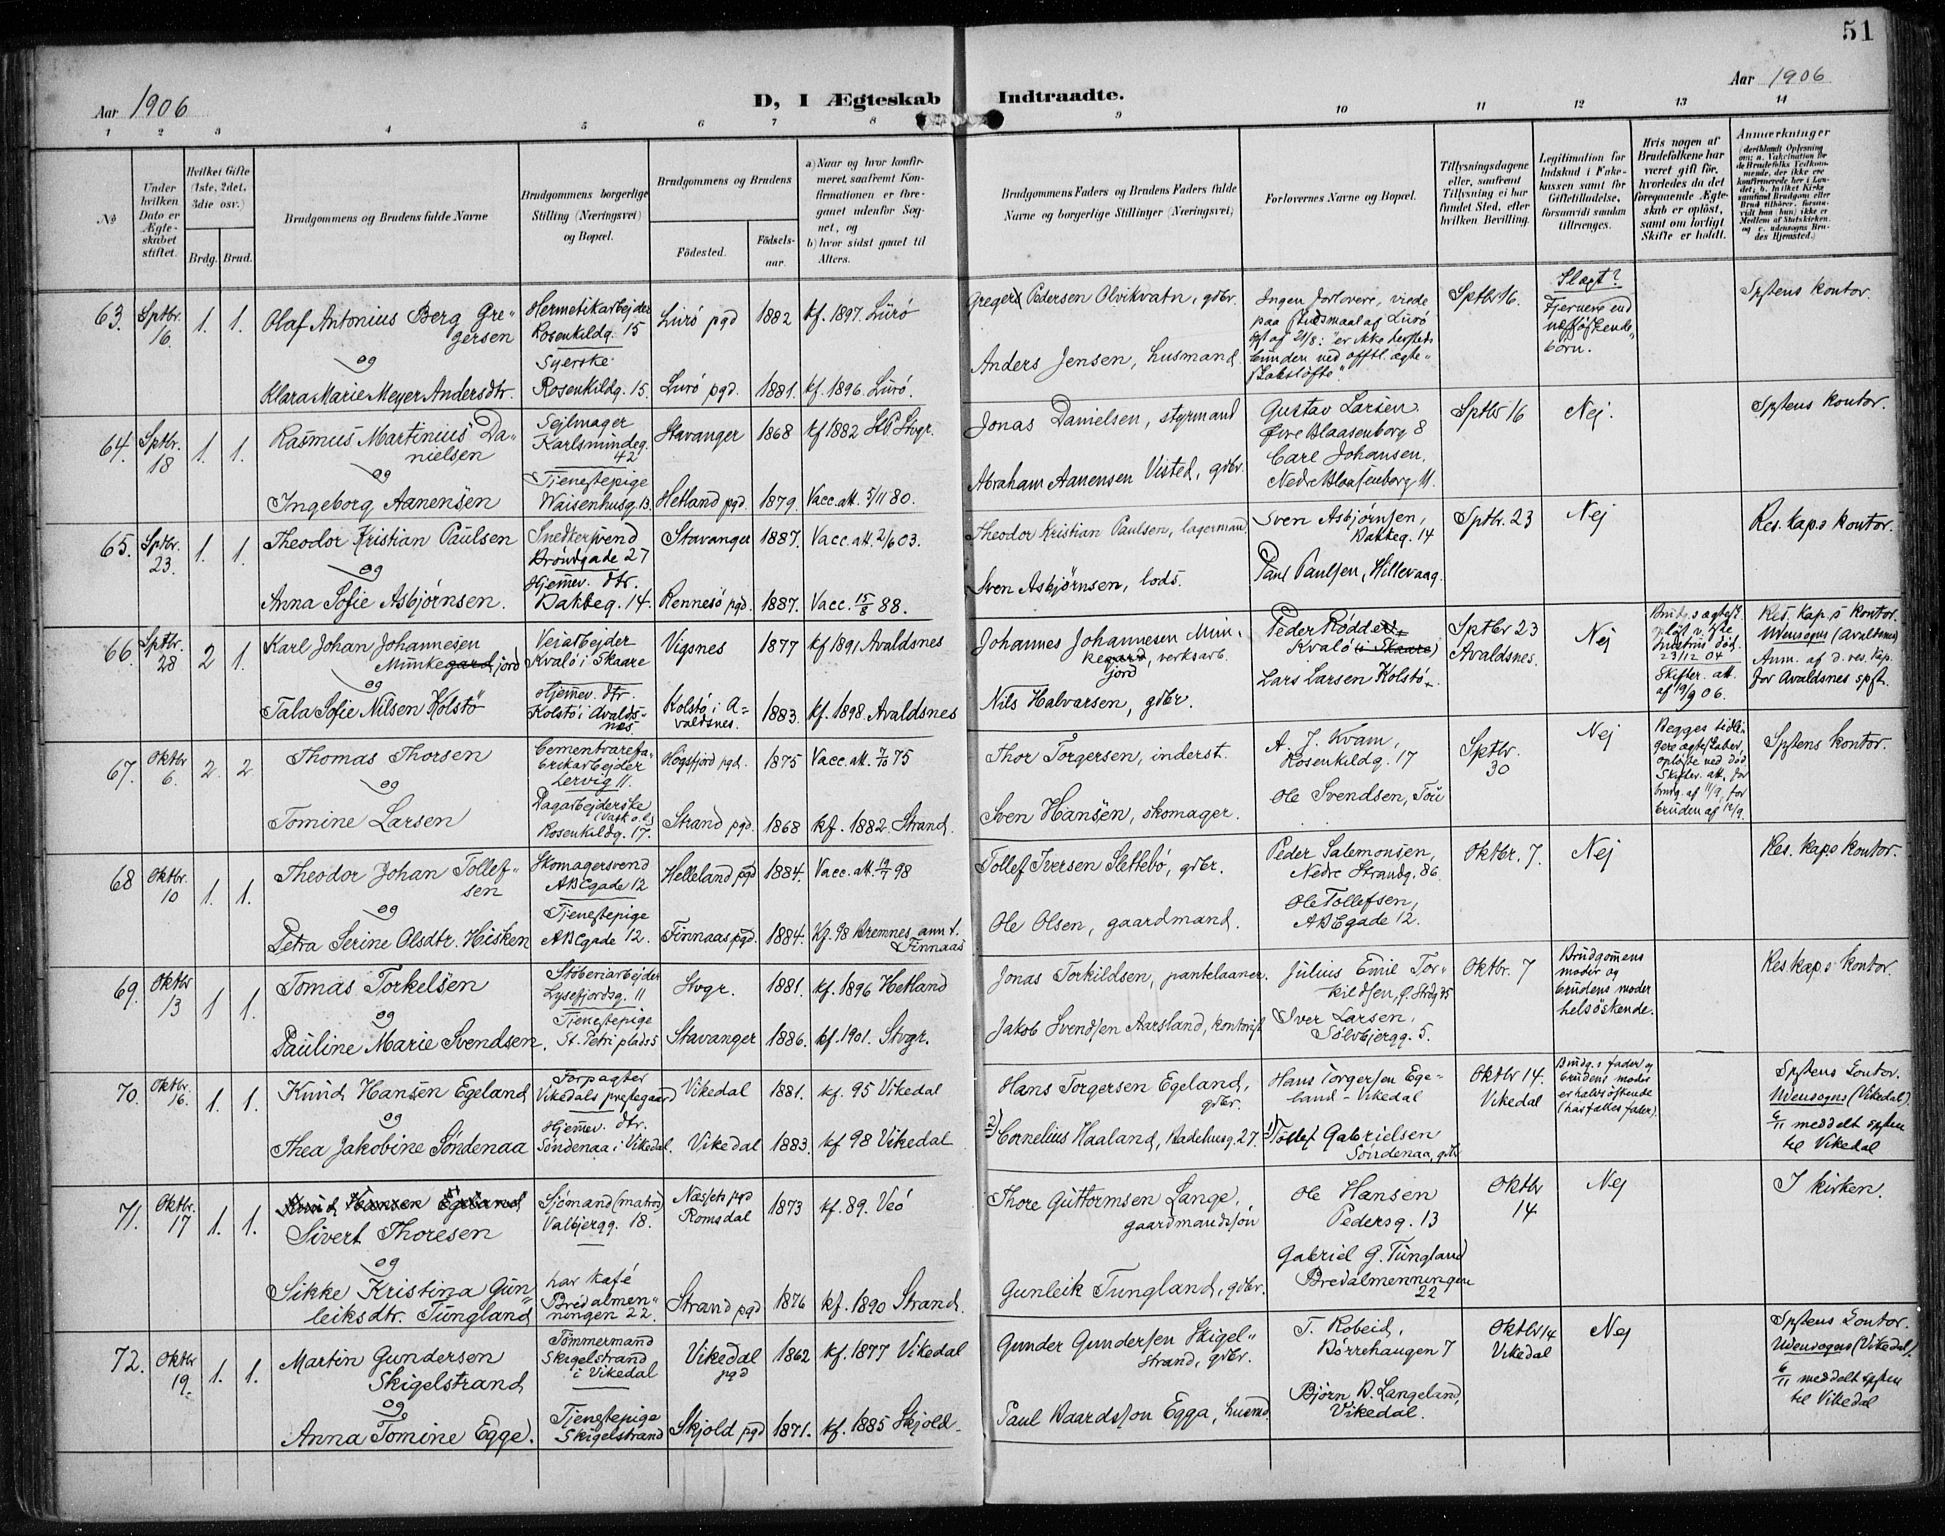 51
Aar 1906
D, I Ægteskab Indtraadte.
Aar 1906
1 2 3 4 5 6 7 8 9 10 11 12 13 14
No
Under hvilken Dato er Ægteskabet stiftet.
Hvilket Gifte (1ste, 2det, 3die osv.)
Brdg. Brud.
Brudgommens og Brudens fulde Navne
Brudgommens borgerlige Stilling (Næringsvei) og Bopæl.
Brudgommens og Brudens
Födested.
Födsels-aar.
a) Naar og hvor konfirmeret, saafremt Konfirmationen er foregaaet udenfor Sognet, og
b) hvor sidst gaaet til Alters.
Brudgommens Faders og Brudens Faders fulde Navne og borgerlige Stillinger (Næringsvei)
Forlovernes Navne og Bopæl.
Tillysningsdagene eller, saafremt Tillysning ei har fundet Sted, efter hvilken Bevilling.
Legitimation for Indskud i Enkekassen samt for Giftetilladelse, forsaavidt saadan tiltrænges.
Hvis nogen af Brudefolkene har været gift för, hvorledes da det foregaaende Ægteskab er oplöst, samt om lovligt Skifte er holdt.
Anmærkninger
63. Sptbr. 16 1. 1. Olaf Antonius Berg Gregersen
Hermetikarbejder Rosenkildg. 15
Lurö pgd 1882 kf. 1897 Lurö
Gregers Pedersen Olvikvatn, gdbr.
Ingen forlovere, viede paa skudsmaal af Lurö
Sptbr 16.
Slægt? Fjernere end næstsøskendebørn.
Spstens kontor.
og
Klara Marie Meyer Andersdtr.
Syerske Rosenkildg. 15.
Lurö pgd. 1881. kf. 1896 Lurö.
Anders Jensen, husmand
64. Sptbr. 18 1. 1. Rasmus Martinius Danielsen
Sejlmager Karlsmindeg. 42
Stavanger 1868 kf 1882 St P Stvgr.
Jonas Danielsen, styrmand
Gustav Larsen Øvre Blaasenborg 8
Sptbr 16 Nej.
Spstens kontor.
og
Ingeborg Aanensen
Tjenestepige Waisenhusg. 13.
Hetland pgd. 1879. Vacc. att. 5/11 80.
Abraham Aanensen Visted, gdbr.
Carl Johansen, Nedre Blaasenborg 11.
65. Sptbr. 23. 1. 1. Theodor Kristian Paulsen
Snedkersvend Brøndgade 27
Stavanger 1887. Vacc. att. 2/6 03.
Theodor Kristian Paulsen, lagermand
Sven Asbjørnsen, Bakkeg. 14
Sptbr. 23 Nej
Res. kap.s kontor.
og
Anna Sofie Asbjørnsen.
Hjemmev. dtr. Bakkeg. 14.
Rennesö pgd. 1887. Vacc. 15/8 88.
Sven Asbjørnsen, lods.
Paul Paulsen, Hillevaag.
66. Sptbr. 28 2 1. Karl Johan Johannesen Munkegard jord
Veiarbejder Kvalö i Skaare
Vigsnes 1877 kf 1891 Avaldsnes
Johannes Johannesen Munkegard jord, verksarb.
Peder Rødde Kvalö (i Skaare)
Sptbr 23 Avaldsnes.
Nej
Brudg.s ægtesk. opløst v. 1ste hustrus död 23/12 04 Skifter. att. af 19/9 06.
Res. kap.s kontor. Udensogns (Avaldsnes) Anm. af d. res. kap. for Avaldsnes spst.
og
Tala Sofie Nilsen Kolstö
Hjemmev. dtr. Kolstö i Avaldsnes
Kolstö i Avaldsnes. 1883. kf. 1898 Avaldsnes
Nils Halvarsen, gdbr.
Lars Larsen Kolstö
67. Oktbr 6. 2. 2 Thomas Thorsen
Cementvarefabrikarbejder Lervig 11.
Högsfjord pgd. 1875 Vacc. att. 7/10 75
Thor Torgersen, inderst.
A. J. Kvam, Rosenkildg. 17
Sptbr. 30
Nej
Begges tidligere ægteskaber opløste ved död Skifter. att. for brudg. af 11/9, for bruden af 12/9.
Spstens kontor.
og
Tomine Larsen
Dagarbejderske (Vask o. l.) Rosenkildg. 17.
Strand pgd. 1868 kf. 1882 Strand.
Sven Hansen, skomager.
Ole Svendsen, Tou
68 Oktbr. 10 1. 1. Theodor Johan Tollefsen
Skomagersvend ABCgade 12
Helleland pgd 1884. Vacc. att. 98
Tollef Iversen Slettebö, gdbr.
Peder Salemonsen, Nedre Strandg. 86.
Oktbr. 7. Nej
Res. kap.s kontor.
og
Petra Serine Olsdtr. Hisken
Tjenestepige ABCgade 12.
Finnaas pgd. 1884. kf. 98 Bremnes, ann. t. Finnaas
Ole Olsen, gaardmand.
Ole Tollefsen, ABCgade 12.
69. Oktbr 13 1 1. Tomas Torkelsen
Støberiarbejder Lysefjordsg. 11
Stvgr. 1881. kf. 1896 Hetland
Jonas Torkildsen, pantelaaner.
Julius Emil Torkildsen, Ø. Strdg 35
Oktbr. 7
Brudgommens moder og brudens moder helsöskende.
Res kap.s kontor.
og
Pauline Marie Svendsen.
Tjenestepige St. Petri plads 5
Stavanger 1886. kf. 1901. Stvgr.
Jakob Svendsen Aarsland, kontorist
Iver Larsen, Sølvbjergg. 5.
70. Oktbr. 16. 1. 1. Knud Hansen Egeland
Forpagter Vikedals prestegaard
Vikedal 1881. kf. 95 Vikedal
Hans Torgersen Egeland, gdbr.
Hans Torgersen Egeland - Vikedal
Oktbr 14. Vikedal
Brudg.s fader og brudens moder er halvsöstende (har fælles fader).
Spstens kontor. Udensogns (Vikedal). 6/11 meddelt spsten til Vikedal
og
Thea Jakobine Söndenaa
Hjemmev. dtr. Söndenaa i Vikedal.
Vikedal 1883. kf 98 Vikedal
2) Cornelius Haaland, Badehusg. 27.
1) Tollef Gabrielsen Söndenaa, gdbr
71. Oktbr. 17 1. 1. Knud Hansen Egeland
Sivert Thoresen
Sjömand (matros) Valbjergg. 18.
Næssets pgd Romsdal 1873 kf. 89. Veö
Thore Guttormsen Lange, gaardmandssön
Ole Hansen Pedersg. 13
Oktbr 14 Nej
I kirken.
og
Sikke Kristina Gunleiksdtr. Tungland
har kafé Bredalmenningen 22.
Strand pgd 1876 kf. 1890 Strand.
Gunleik Tungland, gdbr.
Gabriel G. Tungland Bredalmenningen 22
72. Oktbr 19. 1. 1. Martin Gundersen Skigelstrand
Tömmermand Skigelstrand i Vikedal
Vikedal pgd 1862 kf. 1877 Vikedal
Gunder Gundersen Skigelstrand, gdbr.
T. Robeid, Børrehaugen 7
Oktbr 14 Vikedal
Nej
Spstens kontor. Udensogns (Vikedal). 6/11 meddelt spsten til Vikedal
og
Anna Tomine Egge.
Tjenestepige Skigelstrand
Skjold pgd 1871. kf. 1885 Skjold.
Paul Baardsson Egga, husmd
Bjørn B. Langeland, Vikedal.